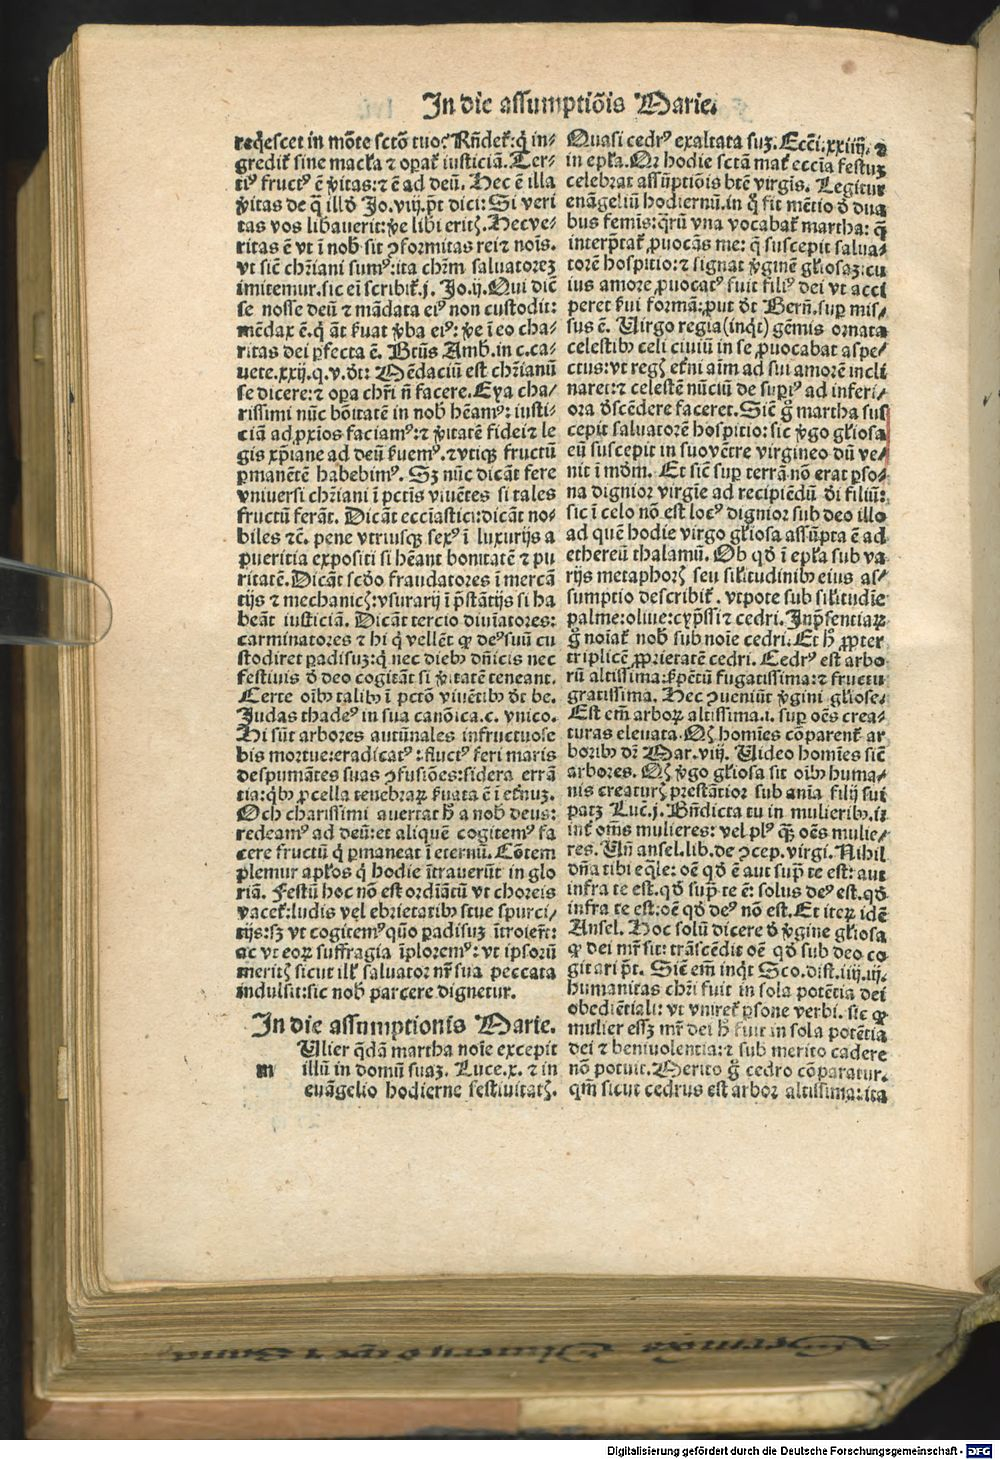 In die assumptiõis Marie.
reqescet in mõte sctõ tuo? Rñdet᷒: q̇ in-
gredit᷒ sine macl̃a ⁊ oꝑat᷒ iusticiã. Ter-
tiꝰ fructꝰ ē v̾itas: ⁊ ē ad deũ. Hec ē illa
v̾itas de q̃ ill̃o Jo. viij. p̃t dici: Si veri
tas vos libauerit: v̾e libi eritꝭ. Hec ve-
ritas ē vt ĩ nob̾ sit ꝯformitas rei ⁊ noĩs.
vt sic̃ chr̃iani sumꝰ: ita chr̃m saluatorez
imitemur. sic eĩ scribit᷒. j. Jo. ij. Qui dic̃
se nosse deũ ⁊ mãdata eiꝰ non custodit:
mẽdax ē. q̇ ãt ẜuat v̾ba eiꝰ: v̾e ĩ eo cha-
ritas dei ꝑfecta ē. Btũs Amb. in c. ca-
uete. xxij. q. v. d̾t: Mẽdaciũ est chr̃ianũ
se dicere: ⁊ oꝑa chr̃i ñ facere. Eya cha-
rissimi nũc bõitatẽ in nob̾ hẽamꝰ: iusti-
ciã ad ꝓxĩos faciamꝰ: ⁊ v̾itatẽ fidei ⁊ le
gis xp̃iane ad deũ ẜuemꝰ. ⁊ vtiqꝫ fructũ
ꝑmanẽtẽ habebimꝰ. Sꝫ nũc dicãt fere
vniuersi chr̃iani ĩ pctĩs viuẽtes si tales
fructũ ferãt. Dicãt ecc̃iastici: dicãt no-
biles ⁊c̃. pene vtriusqꝫ sexꝰ ĩ luxurijs a
pueritia expositi si hẽant bonitatẽ ⁊ pu
ritatẽ. Dicãt scd̾o fraudatores ĩ mercã
tijs ⁊ mechanicꝭ: vsurarij ĩ p̃stãtijs si ha
beãt iusticiã. Dicãt tercio diuĩatores:
carminatores ⁊ hi q̇ vellẽt ꝙ deꝰ suũ cu
stodiret ꝑadisuꝫ: q̇ nec diebꝰ dñicis nec
festiuis d̾ deo cogitãt si v̾itatẽ teneant.
Certe oĩbꝰ talibꝰ ĩ pctõ viuẽtibꝰ d̾t be.
Judas thadeꝰ in sua canõica. c. vnico.
Hi sũt arbores autũnales infructuose
bis mortue: eradicatꝰ: fluctꝰ feri maris
despumãtes suas ꝯfusiões: sidera errã
tia: q̇bꝰ ꝓcella tenebraꝝ ẜuata ē ĩ et̾nuꝫ.
Och charissimi auertat h̾ a nob̾ deus:
redeamꝰ ad deũ: et aliquẽ cogitemꝰ fa
cere fructũ q̇ ꝑmaneat ĩ eternũ. Cõtem
plemur apl̃os q̇ hodie ĩtrauerũt in glo
riã. Festũ hoc nõ est ordĩatũ vt choreis
vacet᷒: ludis vel ebrietatibꝰ siue spurci-
tijs: sꝫ vt cogitemꝰ quõ ꝑadisuꝫ ĩtroiem᷒:
ac vt eoꝝ suffragia ĩploremꝰ: vt ipsorũ
meritꝭ sicut ill̃ saluator nr̃ sua peccata
indulsit: sic nob̾ parcere dignetur.
In die assumptionis Marie.
m Ulier q̃dã martha noĩe excepit
illũ in domũ suaꝫ. Luce. x. ⁊ in
euãgelio hodierne festiuitatꝭ.
Quasi cedrꝰ exaltata suꝫ. Ecc̃i. xxiiij. ⁊
in ep̃la. Qꝛ hodie sctã mat̾ ecc̃ia festuꝫ
celebrat assũptiõis btẽ virgĩs. Legitur
euãgeliũ hodiernũ. in q̇ fit mẽtio d̾ dua
bus femĩs: q̃rũ vna vocabat᷒ martha: q̃
interp̃tat᷒ ꝓuocãs me: q̃ suscepit salua-
torẽ hospitio: ⁊ signat v̾ginẽ gl̃iosaꝫ: cu
ius amore ꝓuocatꝰ fuit filiꝰ dei vt acci
peret ẜui formã: ꝓut d̾t Berñ. suꝑ mis-
sus ē. Uirgo regia (inq̇t) gẽmis ornata
celestibꝰ celi ciuiũ in se ꝓuocabat aspe-
ctus: vt regꝭ et̾ni aĩm ad sui amorẽ incli
naret: ⁊ celestẽ nũciũ de suꝑiꝰ ad inferi-
ora d̾scẽdere faceret. Sic̃ g̊ martha sus
cepit saluatorẽ hospitio: sic v̾go gl̃iosa
eũ suscepit in suo vẽtre virgineo dũ ve-
nit ĩ mũdm. Et sic̃ suꝑ terrã nõ erat ꝑso-
na dignior virgĩe ad recipiẽdũ d̾i filiũ:
sic ĩ celo nõ est locꝰ dignior sub deo illo
ad quẽ hodie virgo gl̃iosa assũpta ē ad
ethereũ thalamũ. Ob qd̾ ĩ ep̃la sub va
rijs metaphorꝭ seu sil̃itudinibꝰ eius as-
sumptio describit᷒. vtpote sub sil̃itudĩe
palme: oliue: cyp̃ssi ⁊ cedri. Inp̃sentiaꝝ
g̊ noĩat᷒ nob̾ sub noĩe cedri. Et h̾ ꝓpter
triplicẽ ꝓprietatẽ cedri. Cedrꝰ est arbo
rũ altissima: ẜpẽtũ fugatissima: ⁊ fructu
gratissima. Hec ꝯueniũt v̾gini gl̃iose.
Est em̃ arboꝝ altissima. i. suꝑ oẽs crea-
turas eleuata. Qꝫ homĩes cõparent᷒ ar
boribꝰ dr̃ Mar. viij. Uideo homĩes sic̃
arbores. Qꝫ v̾go gl̃iosa sit oĩbꝰ huma-
nis creaturꝭ prestãtior sub anĩa filij sui
patꝫ Luc̃. j. Bñdicta tu in mulieribꝰ. i.
int̾ om̃s mulieres: vel plꝰ q̃ꝫ oẽs mulie-
res. Uñ ansel. lib. de ꝯcep. virgi. Nihil
dña tibi eq̃le: oẽ qd̾ ē aut sup̃ te est: aut
infra te est. qd̾ sup̃ te ē: solus deꝰ est. qd̾
infra te est: oẽ qd̾ deꝰ nõ est. Et iteꝝ idẽ
Ansel. Hoc solũ dicere d̾ v̾gine gl̃iosa
ꝙ dei mr̃ sit: trãscẽdit oẽ qd̾ sub deo co
gitari p̃t. Sic̃ em̃ inq̇t Sco. dist. iiij. iij.
humanitas chr̃i fuit in sola potẽtia dei
obediẽtiali: vt vniret᷒ ꝑsone verbi. sic ꝙ
mulier essꝫ mr̃ dei h̾ fuit in sola potẽtia
dei ⁊ beniuolentia: ⁊ sub merito cadere
nõ potuit. Merito g̊ cedro cõparatur.
qm̃ sicut cedrus est arbor altissima: ita
Digitalisierung gefördert durch die Deutsche Forschungsgemeinschaft - DFG